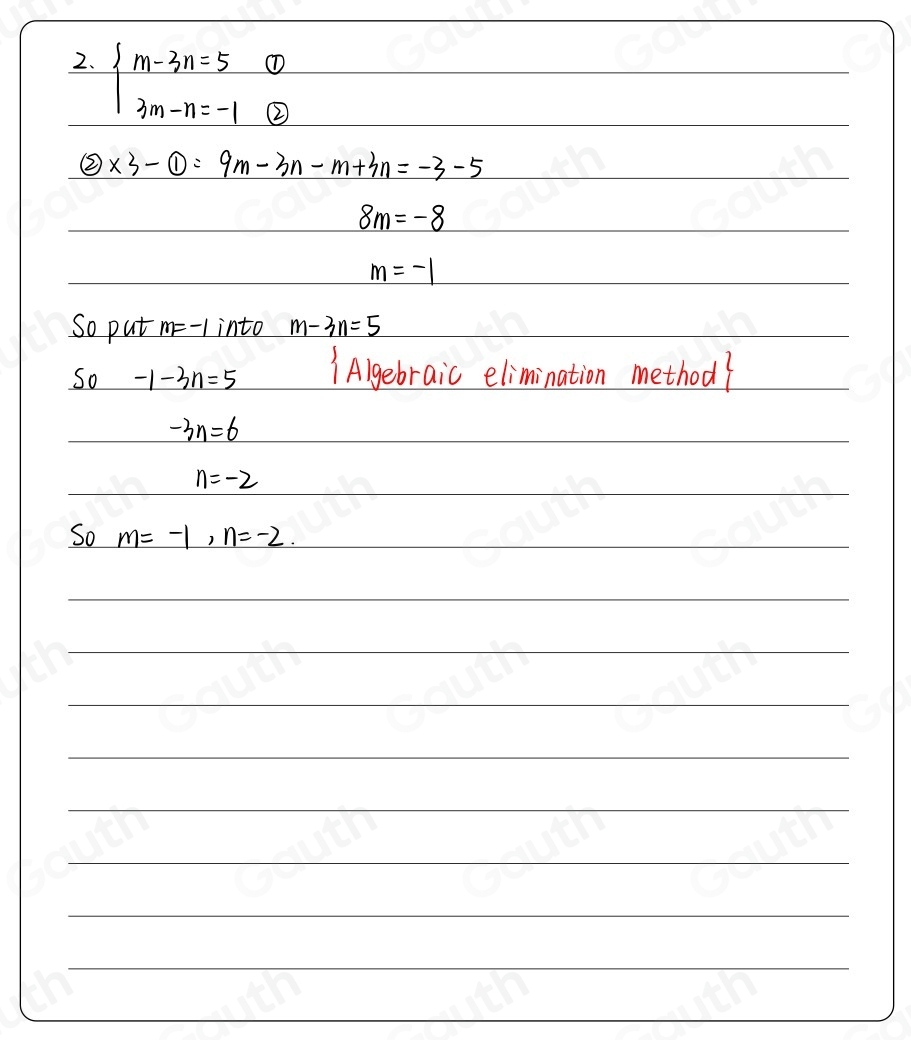 2. { m-3n=5 ①
3m-n=-1 ②
②×3-①: 9m-3n-m+3n=-3-5
8m=-8
m=-1
So put m=-1 into m-3n=5
So -1-3n=5 {Algebraic elimination method}
-3n=6
n=-2
So m=-1, n=-2.